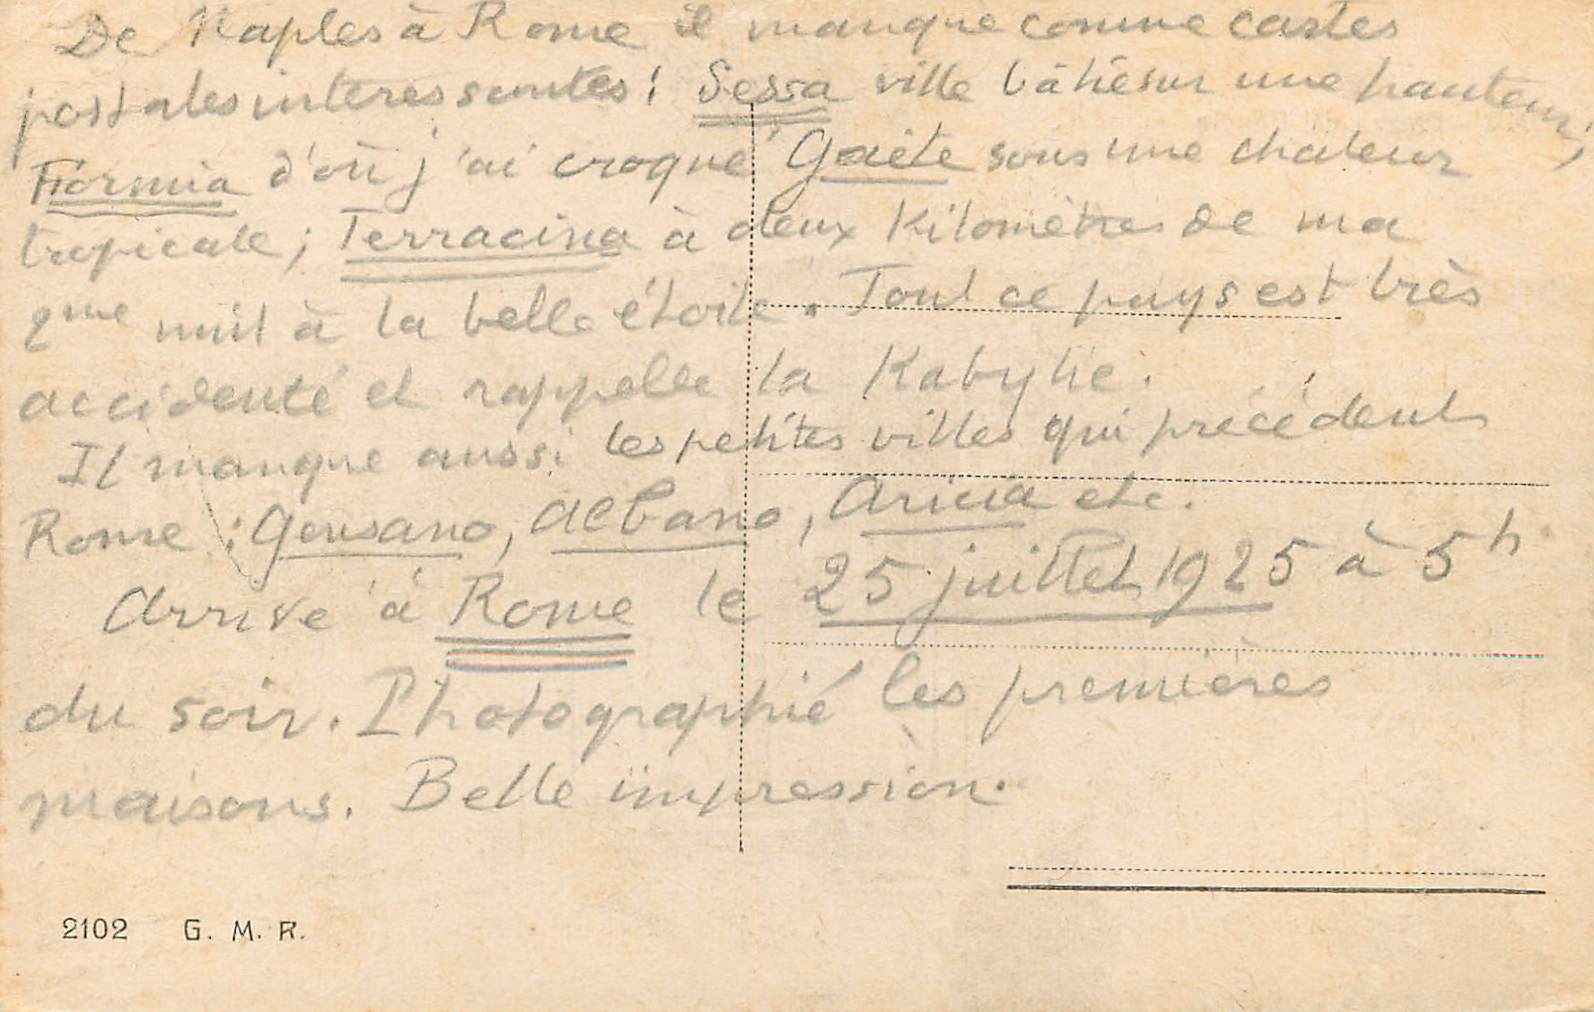 De Naples à Rome il manque comme cartes
postales interessantes : Sessa ville bâtie sur une hauteur,
Formia d'où j'ai croqué Gaëte sous une chaleur
tropicale ; Terracina à deux kilomètres de ma
2me nuit à la belle étoile. Tout ce pays est très
accidenté et rappelle la Kabylie.
Il manque aussi les petites villes qui précédent
Rome : Gensano, Albano, Aricia etc.
Arrivé à Rome le 25 juillet 1925 à 5h
du soir. Photographié les premières
maisons. Belle impression.
2102 G. M. R.